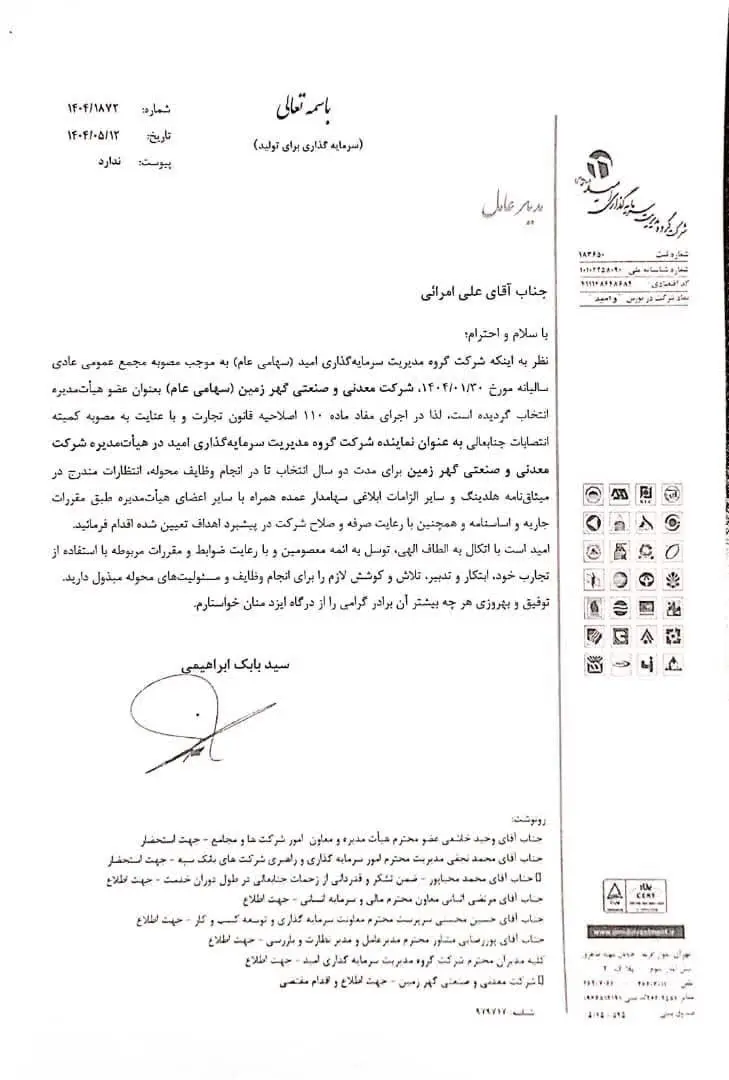 باسمه تعالی
(سرمایه گذاری برای تولید)
شماره: ۱۴۰۴/۱۸۷۲
تاریخ: ۱۴۰۴/۰۵/۱۲
پیوست: ندارد
مدیر عامل
شرکت گروه مدیریت سرمایه گذاری امید
شماره ثبت ۱۸۳۶۵۰
شماره شناسنامه ملی ۱۰۱۰۲۲۵۸۰۹۰
کد اقتصادی ۴۱۱۱۴۸۶۴۸۶۸۴
نماد شرکت در بورس "وامید"
جناب آقای علی امرائی
با سلام و احترام؛
نظر به اینکه شرکت گروه مدیریت سرمایه‌گذاری امید (سهامی عام) به موجب مصوبه مجمع عمومی عادی
سالیانه مورخ ۱۴۰۴/۰۱/۳۰، شرکت معدنی و صنعتی گهر زمین (سهامی عام) بعنوان عضو هیأت‌مدیره
انتخاب گردیده است، لذا در اجرای مفاد ماده ۱۱۰ اصلاحیه قانون تجارت و با عنایت به مصوبه کمیته
انتصابات جنابعالی به عنوان نماینده شرکت گروه مدیریت سرمایه‌گذاری امید در هیأت‌مدیره شرکت
معدنی و صنعتی گهر زمین برای مدت دو سال انتخاب تا در انجام وظایف محوله، انتظارات مندرج در
میثاق‌نامه هلدینگ و سایر الزامات ابلاغی سهامدار عمده همراه با سایر اعضای هیأت‌مدیره طبق مقررات
جاریه و اساسنامه و همچنین با رعایت صرفه و صلاح شرکت در پیشبرد اهداف تعیین شده اقدام فرمائید.
امید است با اتکال به الطاف الهی، توسل به ائمه معصومین و با رعایت ضوابط و مقررات مربوطه با استفاده از
تجارب خود، ابتکار و تدبیر، تلاش و کوشش لازم را برای انجام وظایف و مسئولیت‌های محوله مبذول دارید.
توفیق و بهروزی هر چه بیشتر آن برادر گرامی را از درگاه ایزد منان خواستارم.
سید بابک ابراهیمی
رونوشت:
جناب آقای وحید خاشعی عضو محترم هیأت مدیره و معاون امور شرکت ها و مجامع - جهت استحضار
جناب آقای محمد نجفی مدیریت محترم امور سرمایه گذاری و راهبری شرکت های بانک سپه - جهت استحضار
جناب آقای محمد محیاپور - ضمن تشکر و قدردانی از زحمات جنابعالی در طول دوران خدمت - جهت اطلاع
جناب آقای مرتضی معاون محترم مالی و سرمایه انسانی - جهت اطلاع
جناب آقای حسین محسنی سرپرست محترم معاونت سرمایه گذاری و توسعه کسب و کار - جهت اطلاع
جناب آقای پوررضایی مشاور محترم مدیرعامل و مدیر نظارت و بازرسی - جهت اطلاع
کلیه مدیران محترم شرکت گروه مدیریت سرمایه گذاری امید - جهت اطلاع
شرکت معدنی و صنعتی گهر زمین - جهت اطلاع و اقدام مقتضی
شناسه: ۹۷۹۷۱۷
CERT
www.omidinvestment.ir